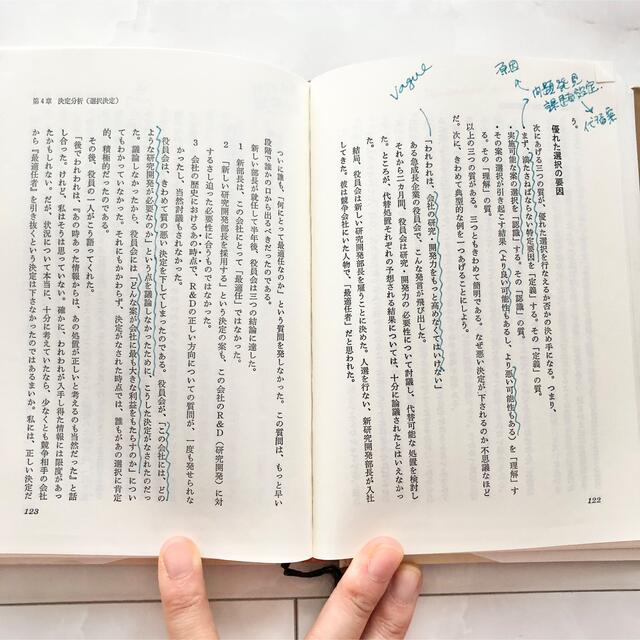 Vague
原因
問題発見
課題設定
代替案
優れた選択の要因
次にあげる三つの質が、優れた選択を行なえるか否かの決め手になる。つまり、
まず、満たさねばならない特定要因を「定義」する。その「定義」の質。
・実施可能な案の選択を「認識」する。その「認識」の質。
・その案の選択が引き起こす結果（より良い可能性もあるし、より悪い可能性もある）を「理解」す
る。その「理解」の質。
以上の三つの質がある。三つともきわめて簡明である。なぜ悪い決定が下されるのか不思議なほど
だ。次に、きわめて典型的な例を一つあげることにしよう。
「われわれは、会社の研究・開発力をもっと高めなくてはいけない」
ある急成長企業の役員会で、こんな発言が飛び出した。
それから二カ月間、役員会は研究・開発力の必要性について討議し、代替可能な処置を検討し
た。ところが、代替処置それぞれの予想される結果については、十分に論議されたとはいえなかっ
た。
結局、役員会は新しい研究開発部長を雇うことに決めた。人選を行ない、新研究開発部長が入社
してきた。彼は競争会社にいた人物で、「最適任者」だと思われた。
122
第4章 決定分析（選択決定）
ついに誰も、「何にとって最適任なのか」という質問を発しなかった。この質問は、もっと早い
段階で誰かの口から出るべきだったのである。
新しい部長が就任して半年後、役員会は三つの結論に達した。
1 新部長は、この会社にとって「最適任」ではなかった。
2 「新しい研究開発部長を採用する」という決定の案も、この会社のR&D（研究開発）に対
するさし迫った必要性に合うものではなかった。
3 会社の歴史におけるあの時点で、R&Dの正しい方向についての質問が、一度も発せられな
かったし、当然討議もされなかった。
役員会は、きわめて質の悪い決定を下してしまったのである。役員会が、「この会社には、どの
ような研究開発が必要なのか」という点を議論しなかったために、こうした決定がなされたのだっ
た。議論しなかったから、役員会には「どんな案が会社に最も大きな利益をもたらすのか」につい
てもわかっていなかった。それにもかかわらず、決定がなされた時点では、誰もがあの選択に肯定
的、積極的だったのである。
その後、役員の一人がこう語ってくれた。
「後でわれわれは、『あの時あった情報からは、あの処置が正しいと考えるのも当然だった』と話
し合った。けれど、私はそうは思っていない。確かに、われわれが入手し得た情報には限度があっ
たかもしれない。だが、状況について本当に、十分に考えていたなら、少なくとも競争相手の会社
から『最適任者』を引き抜くという決定は下さなかったのではあるまいか。私には、正しい決定だ
123